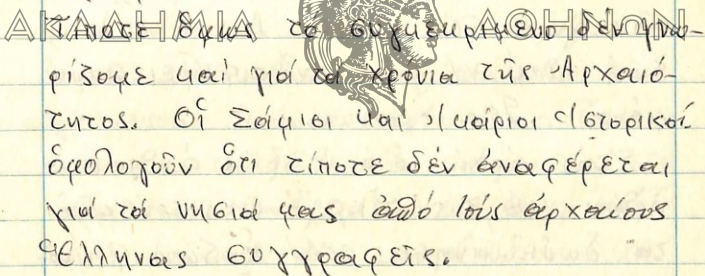 ΑΚΑΔΗΜΙΑ ΑΘΗΝΩΝ
Τίποτε ὅμως τό συγκεκριμένο δέν γνω-
ρίζομε καί γιά τά χρόνια τῆς Ἀρχαιό-
τητος. Οἱ Σάμιοι καί Ἰκάριοι ἱστορικοί
ὁμολογοῦν ὅτι τίποτε δέν ἀναφέρεται
γιά τά νησιά μας ἀπό τούς ἀρχαίους
Ἕλληνας συγγραφεῖς.